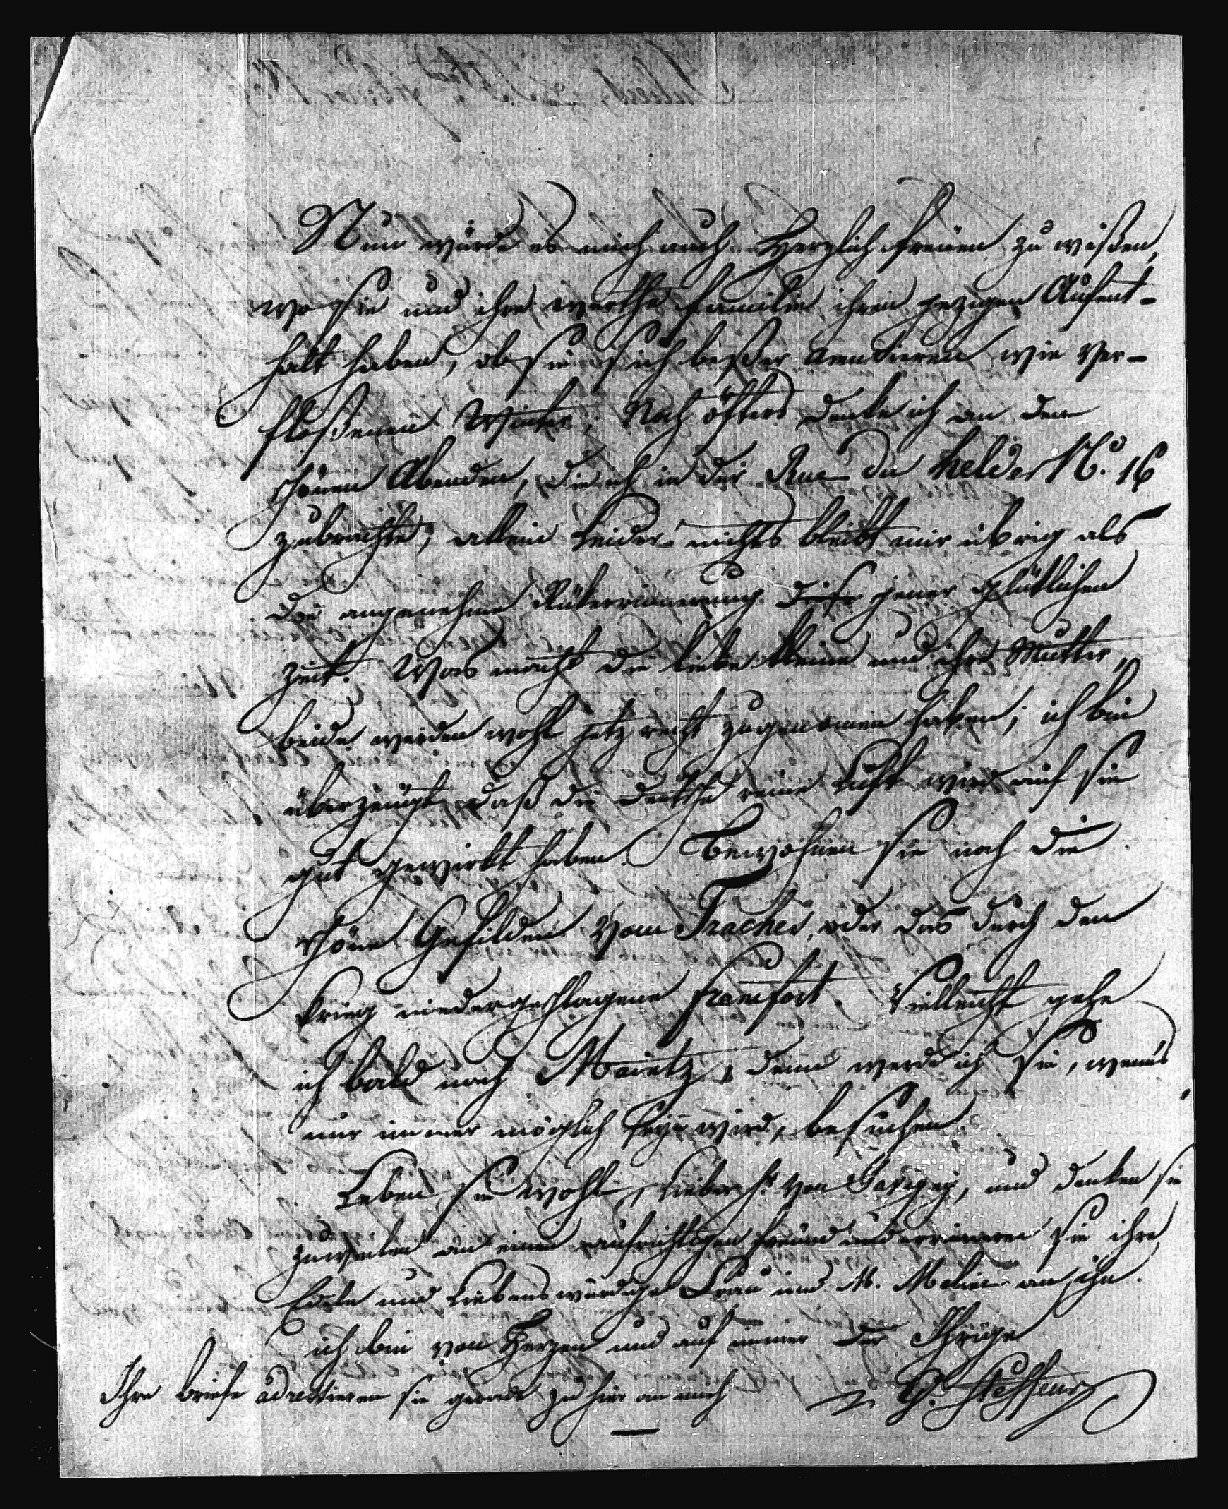 Nun würde es mich auch Herzlich freuen zu wißen,
wo Sie und ihre werthe Familie ihren jezigen Aufent-
halt haben, ob sie sich beßer amusieren wie ver-
floßenen Winter, Noch öfters denke ich an den
schönen Abenden, die ich in der Rue du helder N.º 16
zubrachte, allein leider nichts bleibt mir übrig als
die angenehme Rükerinnerung dieser jener glüklichen
zeit. Was macht die liebe kleine und ihre Mutter,
beide werden wohl jetz recht zugenomen haben; ich bin
überzeugt daß die deutsche reine Luft wird auf sie
gut gewirkt haben. Bewohnen sie noch die
schöne Gefilden von oder das durch den
Krieg niedergeschlagene francfort. Villeicht gehe
ich bald nach Maintz, dann werde ich Sie, wenns
nur immer möglich seyn wird, besuchen.
Leben sie wohl, lieber H. von und denken sie
zuweilen an einen aufrichtigen freund und erinnern Sie ihre
Edele und Liebenswürdige Frau und M. an ihn.
ich bin von Herzen und auf immer der Ihrige
Ihre briefe adressieren sie gerade zu hier an mich
G. Steffens